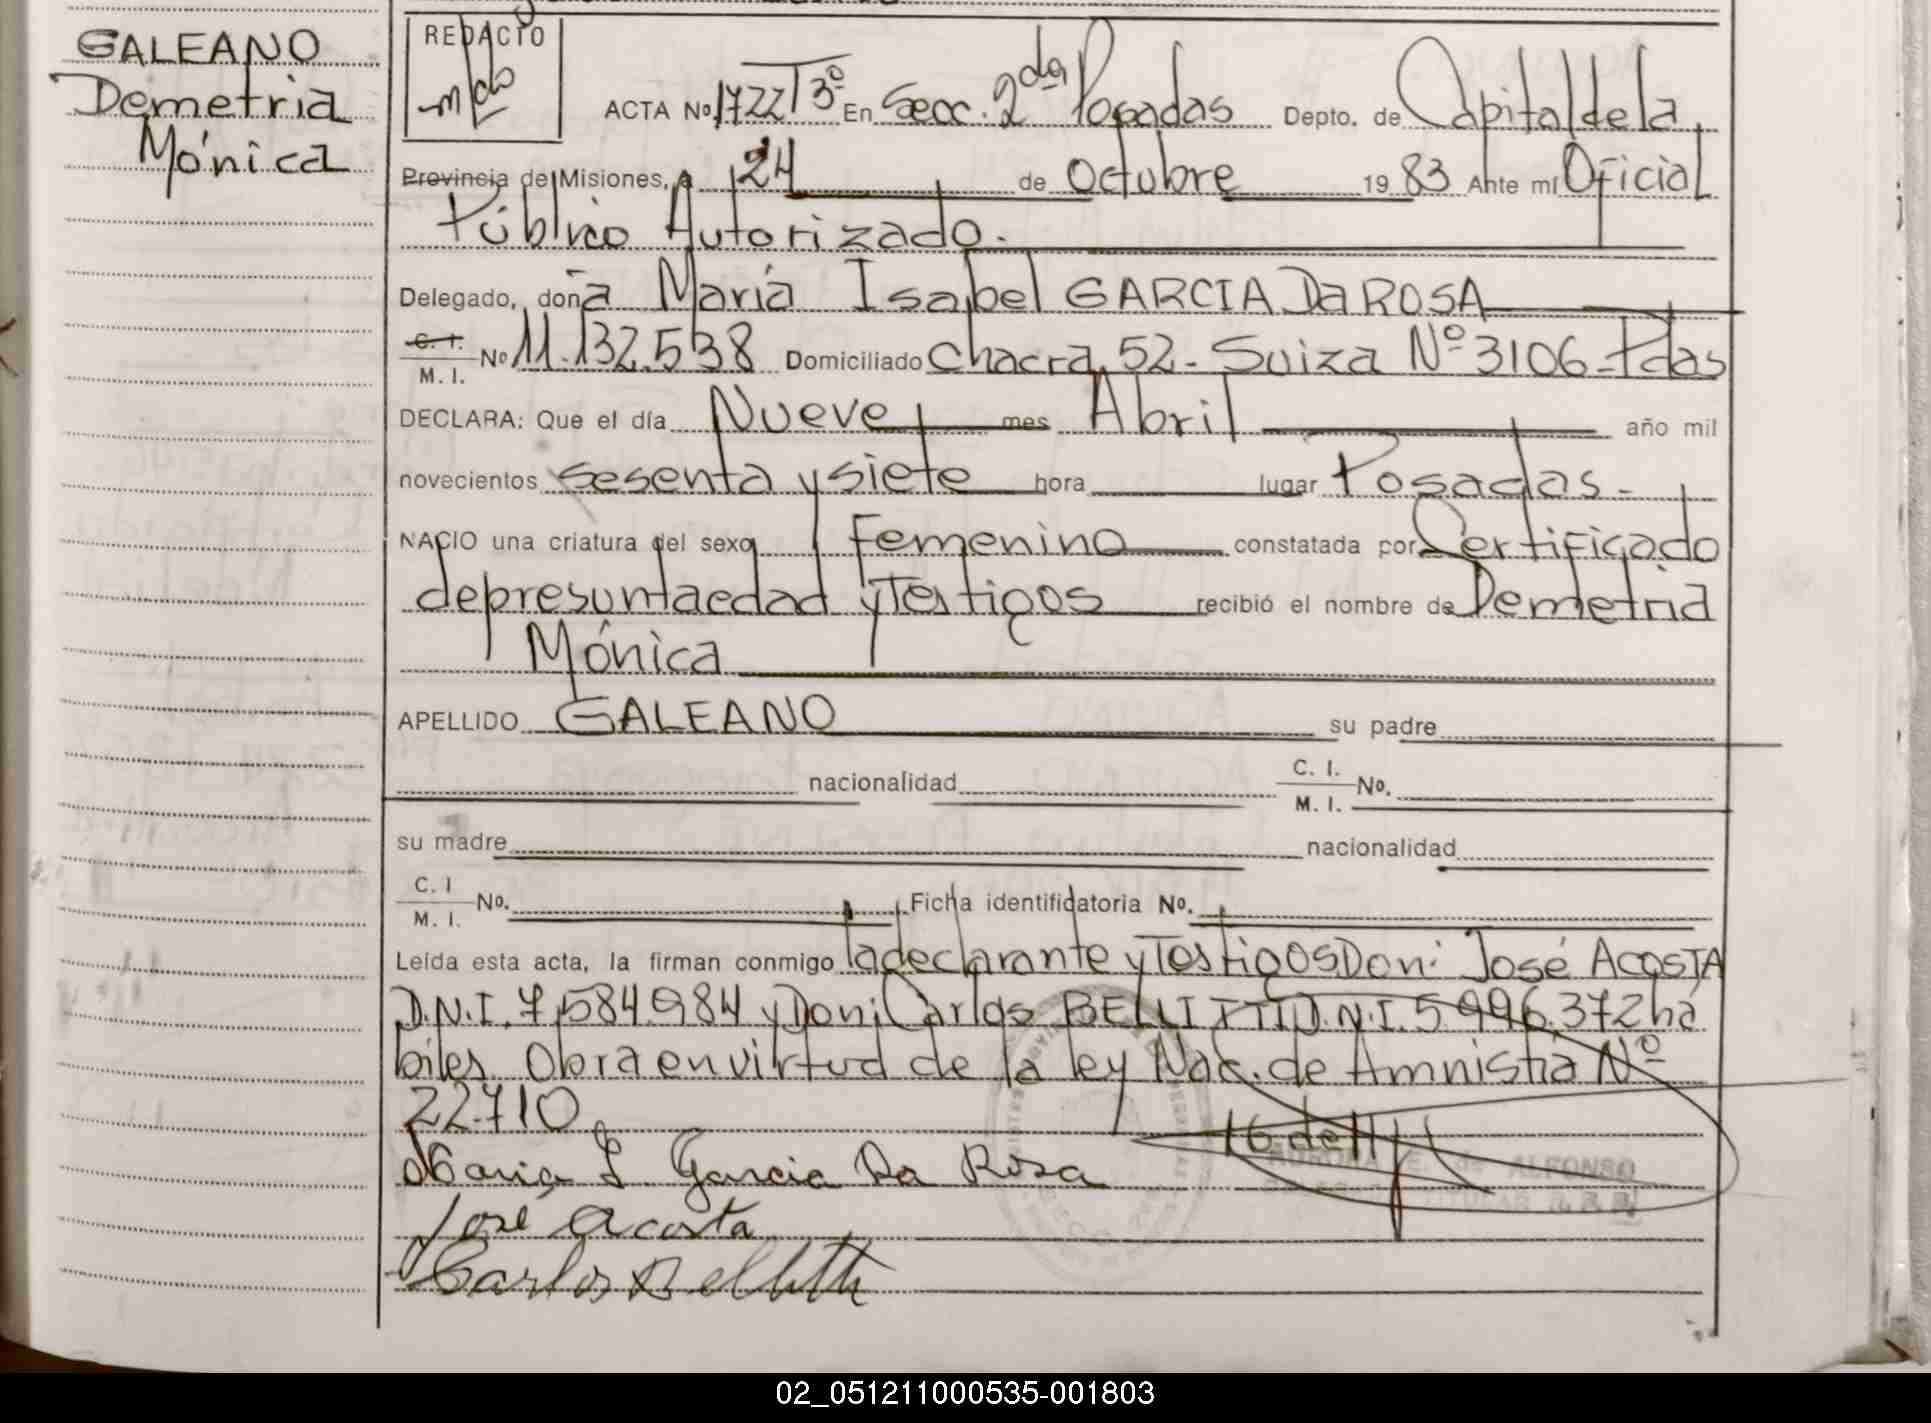 GALEANO
Demetria
Mónica
REDACTO
ACTA Nº 1722 T 3º En Secc. 2da Posadas Depto. de Capital de la
Provincia de Misiones, a 24 de Octubre 19 83 Ante mí Oficial
Público Autorizado.
Delegado, doña María Isabel GARCIA Da ROSA
C. I. M. I. Nº 11.132.538 Domiciliado Chacra 52- Suiza Nº 3106-Pdas
DECLARA: Que el día Nueve mes Abril año mil
novecientos sesenta y siete hora lugar Posadas-
NACIO una criatura del sexo Femenino constatada por Certificado
de presunta edad y Testigos recibió el nombre de Demetria
Mónica
APELLIDO GALEANO su padre
nacionalidad C. I. M. I. No.
su madre nacionalidad
C. I M. I. No. Ficha identificatoria No.
Leída esta acta, la firman conmigo la declarante y Testigos Don: José ACOSTA
D.N.I. 7.584.984 y Don: Carlos BELLITTI D.N.I. 5.996.372 há
biles. Obra en virtud de la ley Nac. de Amnistía Nº
22.710
AURORA E. de ALFONSO
TITULAR
María I. Garcia Da Rosa
José Acosta
Carlos Bellitti
02_051211000535-001803